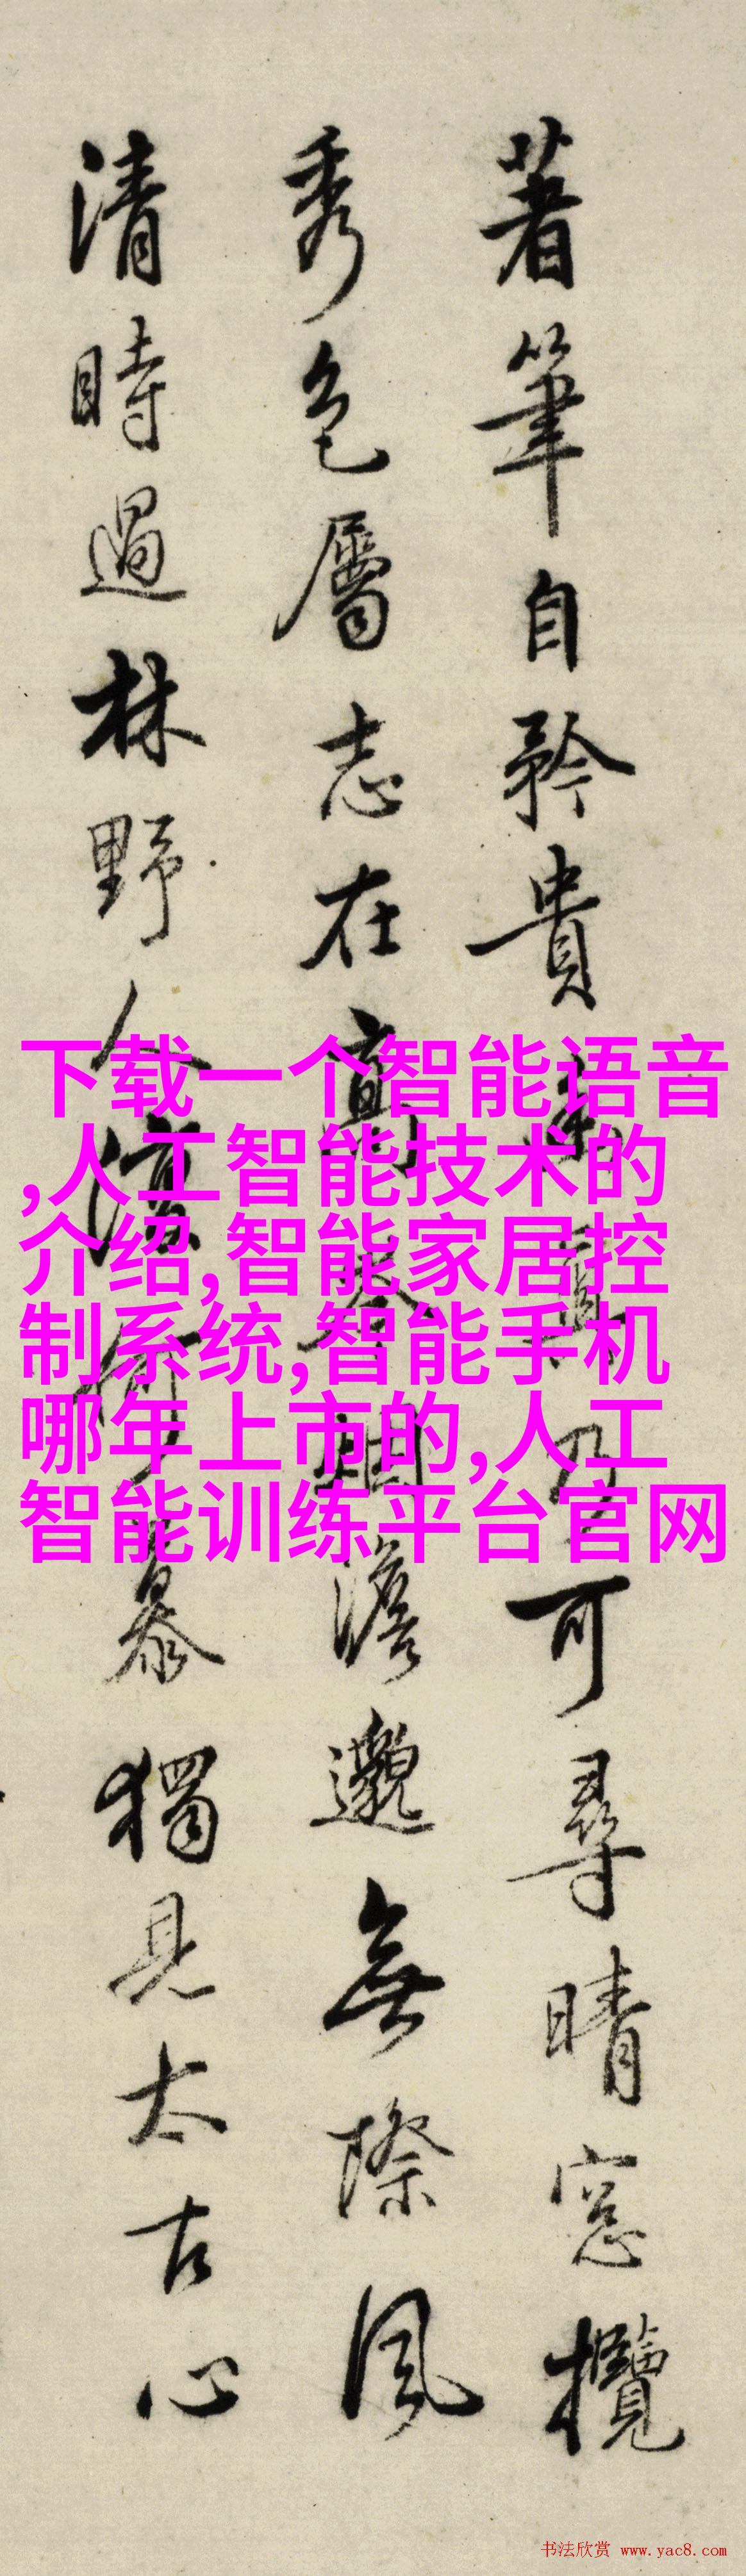 著筆自矜貴乃可尋晴窓攬
秀色屬志在高澹邈無際風
清時過林野人何慕獨見太古心
下载一个智能语音
,人工智能技术的
介绍,智能家居控
制系统,智能手机
哪年上市的,人工
智能训练平台官网
书法欣赏 www.yac8.com